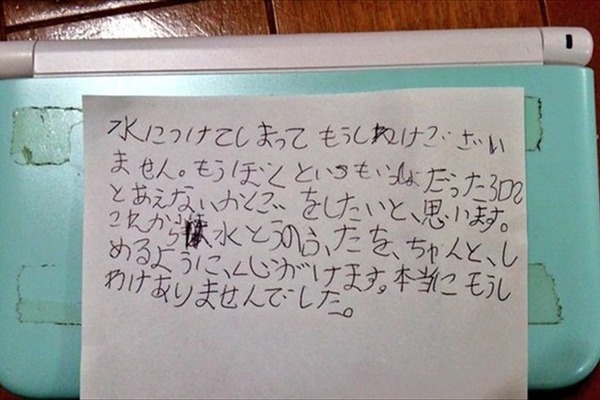 水につけてしまって もうしわけございい
ません。もうぼくといつもいっしょだった3DS
とあえないかとごをしたいと、思います。
これからは水とうのふたを、ちゃんと、し
めるように、心がけます。本当にもうし
わけありませんでした。